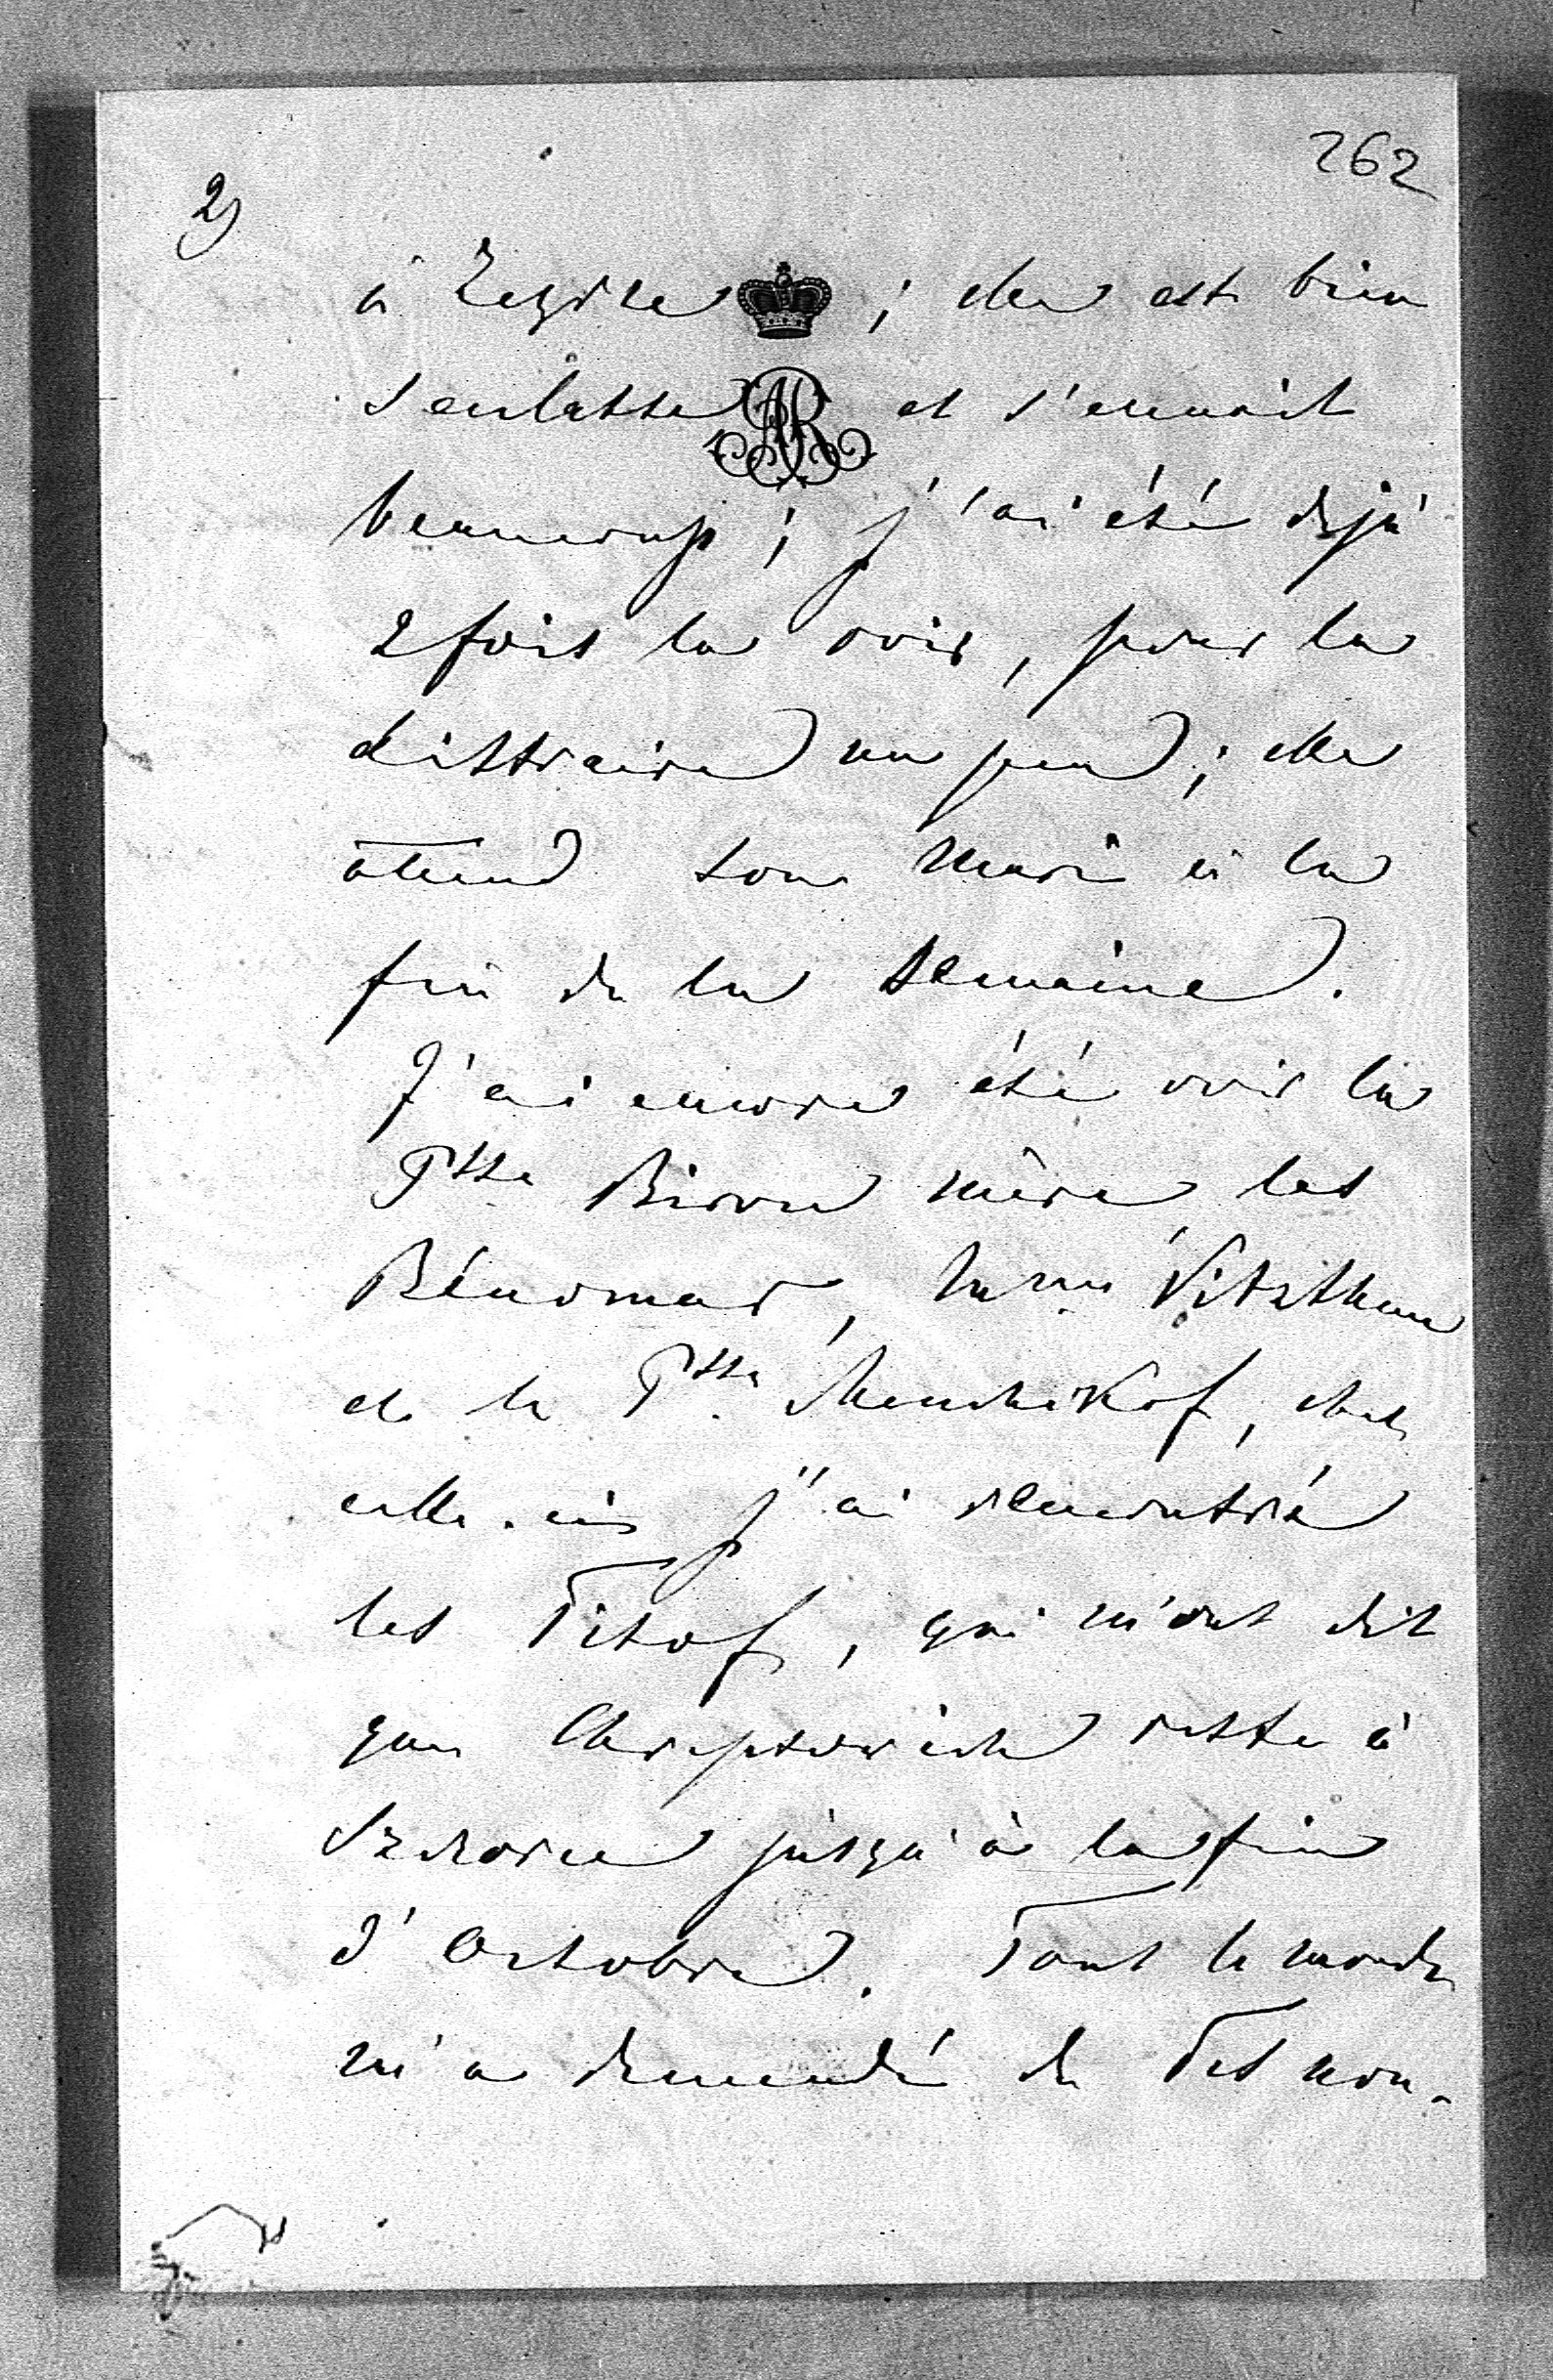 262
2)
à ; elle est bien
seulette et s'ennuit
beaucoup ; j'ai été déjà
2 fois la voir, pour la
distraire un peu ; elle
attend son mari à la
fin de la semaine.
J'ai encore été voir la
Psse Biron mère, les
Bénomar, Mme Vitzthum
et la Psse Menchikof, chez
celle-ci j'ai rencontré
les Titof, qui m'ont dit
que Chreptovich reste à
jusqu'à la fin
d'Octobre. Tout le monde
m'a demandé de Tes nou-